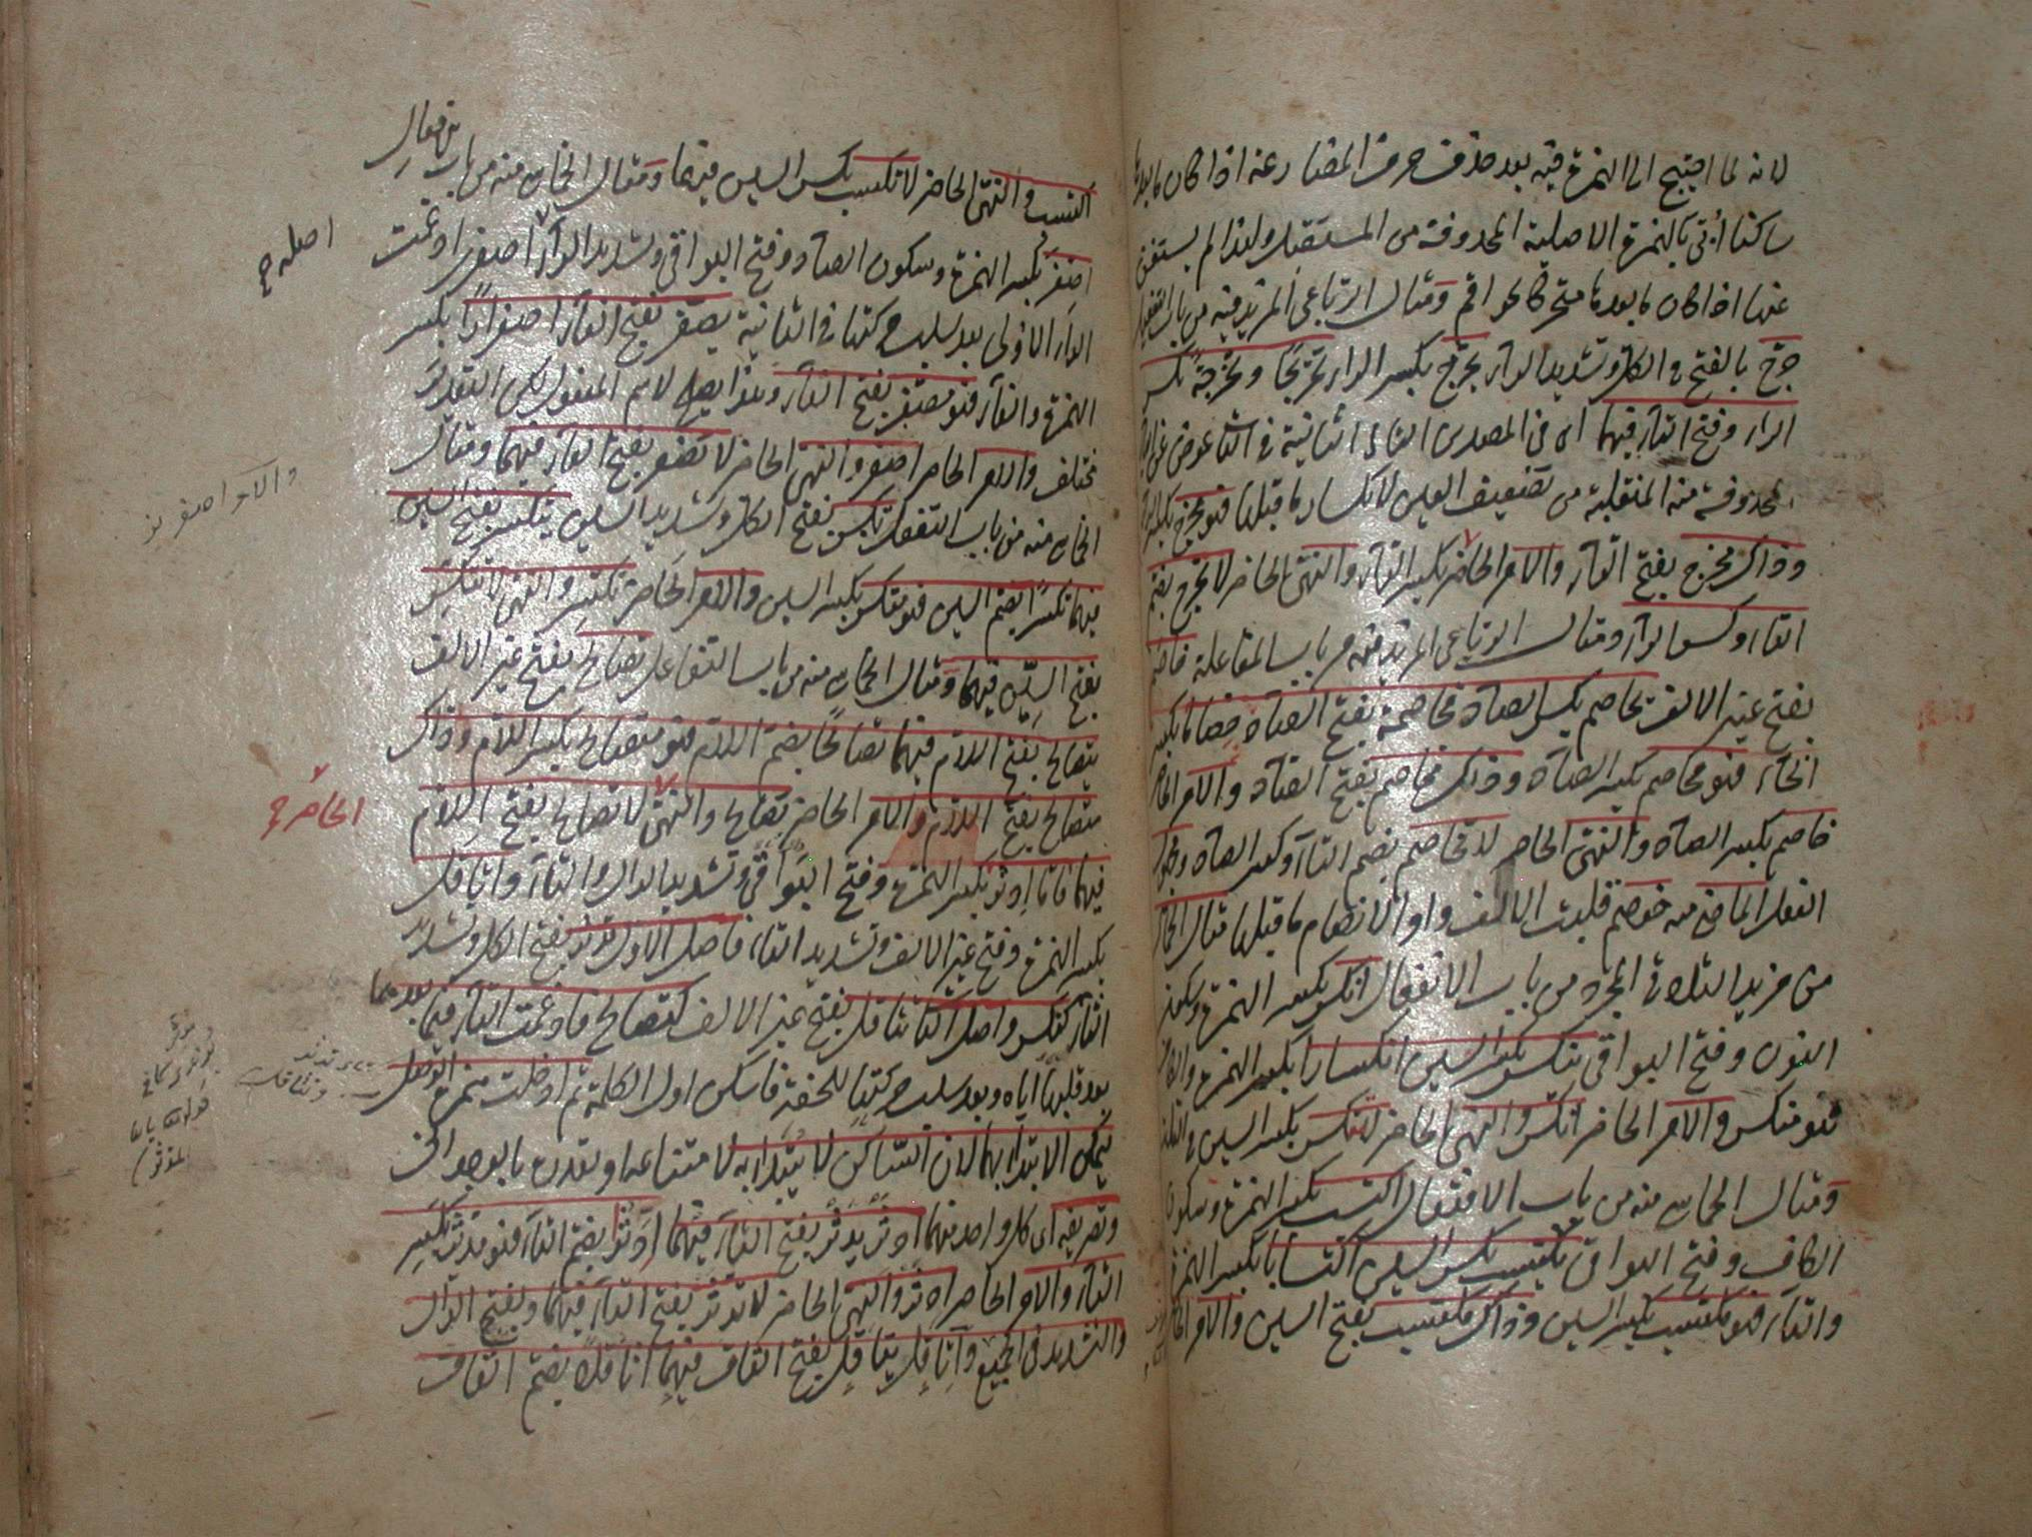 لانه لما احتيج الى الهمزة فيه بعد حذف حرف المضارعة اذا كان ما بعدها
ساكنا أتى بالهمزة الاصلية المحذوفة من المستقبل ولهذا لم يستغن
عنها اذا كان ما بعدها متحركا نحو اقم ومثال الرباعى المزيد فيه من باب التفعيل
خرّج بالفتح فى الكل وتشديد الراء يخرّج بكسر الراء تخريجًا وتخرجة بكسر
الراء وفتح التاء فيهما اى فى المصدرين التاء الثانية فى الثانى عوض عن الياء
المحذوفة منه المنقلبة من تضعيف العين لانكسار ما قبلها فهو مخرج بكسر الراء
وذاك مخرج بفتح الراء والامر الحاضر بكسر الراء والنهى الحاضر لا تخرج بضم
التاء وكسر الراء ومثال الرباعى المزيد فيه من باب المفاعلة خاصم
بفتح غير الالف يخاصم بكسر الصاد مخاصمة بفتح الصاد خصاما بكسر
الخاء فهو مخاصم بكسر الصاد وذاك مخاصم بفتح الصاد والامر الحاضر
خاصم بكسر الصاد والنهى الحاضر لا تخاصم بضم التاء وكسر الصاد
الفعل الماضى منه خوصم قلبت الالف واوا لانضمام ما قبلها مثال الخماسى
من مزيد الثلاثى المجرد من باب الانفعال انكسر بكسر الهمزة وسكون
النون وفتح البواقى ينكسر بكسر السين انكسارا بكسر الهمزة
فهو منكسر والامر الحاضر انكسر والنهى الحاضر لا تنكسر بكسر السين
ومثال الخماسى منه من باب الافتعال اكتسب بكسر الهمزة وسكون
الكاف وفتح البواقى يكتسب بكسر السين اكتسابا بكسر الهمزة
والتاء فهو مكتسب بكسر السين وذاك مكتسب بفتح السين والامر الحاضر
اكتسب والنهى الحاضر لا تكتسب بكسر السين فيهما ومثال الخماسى منه من باب
اصفرّ بكسر الهمزة وسكون الصاد وفتح البواقى وتشديد الراء اصفرر ادغمت
اصله صح
الراء الاولى بعد سلب حركتها فى الثانية يصفر بفتح الفاء اصفرارًا بكسر
الهمزة والفاء فهو مصفر بفتح الفاء وهذا يصلح لاسم المفعول لكن التقدير
مختلف والامر الحاضر اصفر والنهى الحاضر لا تصفر بفتح الفاء فيهما ومثال
والامر اصفر
الخماسى منه من باب التفعل تكسّر بفتح الكل وتشديد السين يتكسر بفتح السين
فيهما تكسرًا بضم السين فهو متكسر بكسر السين والامر الحاضر تكسر والنهى لا تتكسر
بفتح السين فيهما ومثال الخماسى منه من باب التفاعل تصالح بفتح غير الالف
يتصالح بفتح اللام فيهما تصالحًا بضم اللام فهو متصالح بكسر اللام وذاك
متصالح بفتح اللام والامر الحاضر تصالح والنهى لا تتصالح بفتح اللام
الحاضر صح
فيهما فاما ادثر بكسر الهمزة وفتح البواقى وتشديد الدال والثاء واثاقل
بكسر الهمزة وفتح غير الالف وتشديد الثاء فاصل الاول تدثر بفتح الكل وتشديد
الثاء كتكسر واصل الثانى تثاقل بفتح غير الالف كتصالح فادغمت التاء فيما بعدهما
بعد قلبها اياه وبعد سلب حركتها للخفة فاسكن اول الكلمة ثم ادخلت همزة الوصل
ليمكن الابتداء بها لان الساكن لا يبتدأ به لامتناعه
وتصريفه اى كل واحد منهما ادثر يدثر بفتح الثاء فيهما ادثرا بضم الثاء فهو مدثر بكسر
الثاء والامر الحاضر ادثر والنهى الحاضر لا تدثر بفتح الثاء فيهما وبفتح الدال
والتشديد فى الجميع واثاقل يثاقل بفتح القاف فيهما اثاقلا بضم القاف